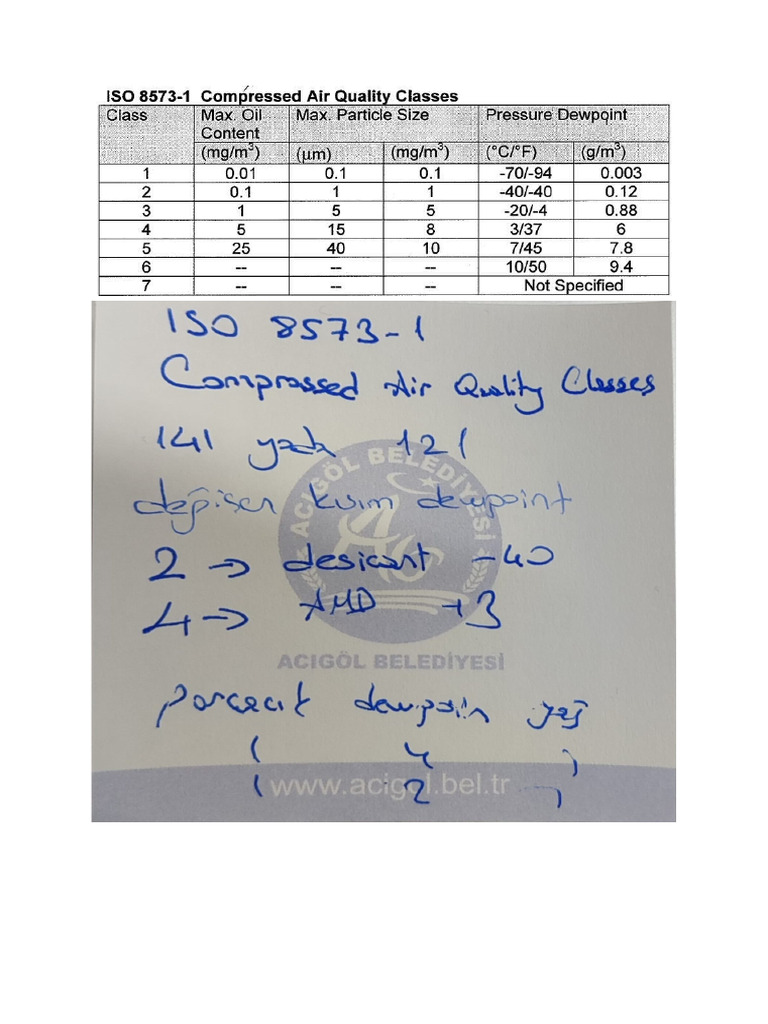 ISO 8573-1 Compressed Air Quality Classes
Class Max. Oil Content Max. Particle Size Pressure Dewpoint
(mg/m³) (µm) (mg/m³) (°C/°F) (g/m³)
1 0.01 0.1 0.1 -70/-94 0.003
2 0.1 1 1 -40/-40 0.12
3 1 5 5 -20/-4 0.88
4 5 15 8 3/37 6
5 25 40 10 7/45 7.8
6 -- -- -- 10/50 9.4
7 -- -- -- Not Specified
ISO 8573-1
Compressed Air Quality Classes
141 121
değişen kısım dewpoint
2 → desicant -40
4 → +3
ACIGÖL BELEDİYESİ
ACIGÖL BELEDİYESİ
parcacık dewpoin yağ
1 4 1
1 2 1
www.acigol.bel.tr